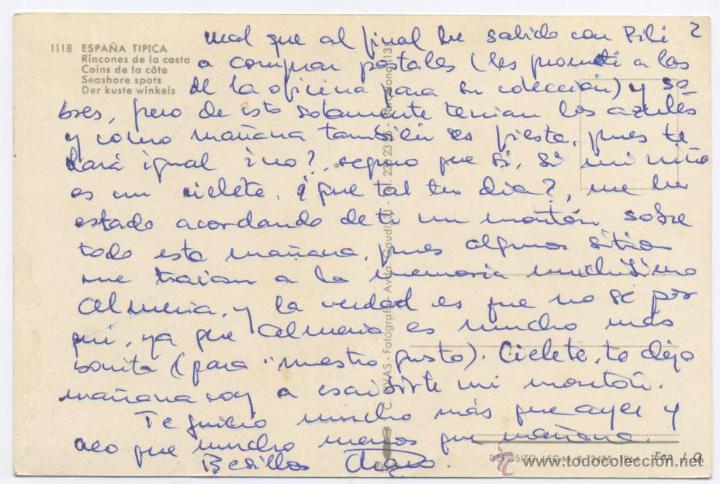 1118 ESPAÑA TIPICA
Rincones de la costa
Coins de la côte
Seashore spots
Der kuste winkels
2
mal que al final he salido con Pili
a comprar postales (les prometí a las
de la oficina para su colección) y so-
bres, pero de esto solamente tenían los azules
y como mañana también es fiesta, pues te
dará igual ¿no?, seguro que sí, si mi niño
es un cielete. ¿Que tal tu dia?, me he
estado acordando de ti un montón, sobre
todo esta mañana, pues algunos sitios
me traian a la memoria muchisimo
Almeria, y la verdad es que no se por
qué, ya que Almeria es mucho más
bonita (para "nuestro gusto). Cielete, te dejo
mañana voy a escribirte un montón.
Te quiero mucho más que ayer y
creo que mucho menos que mañana.
Besillos
C. VIVAS - Fotografía - Avda.
DEPOSITO LEGAL B.
www.todocoleccion.net